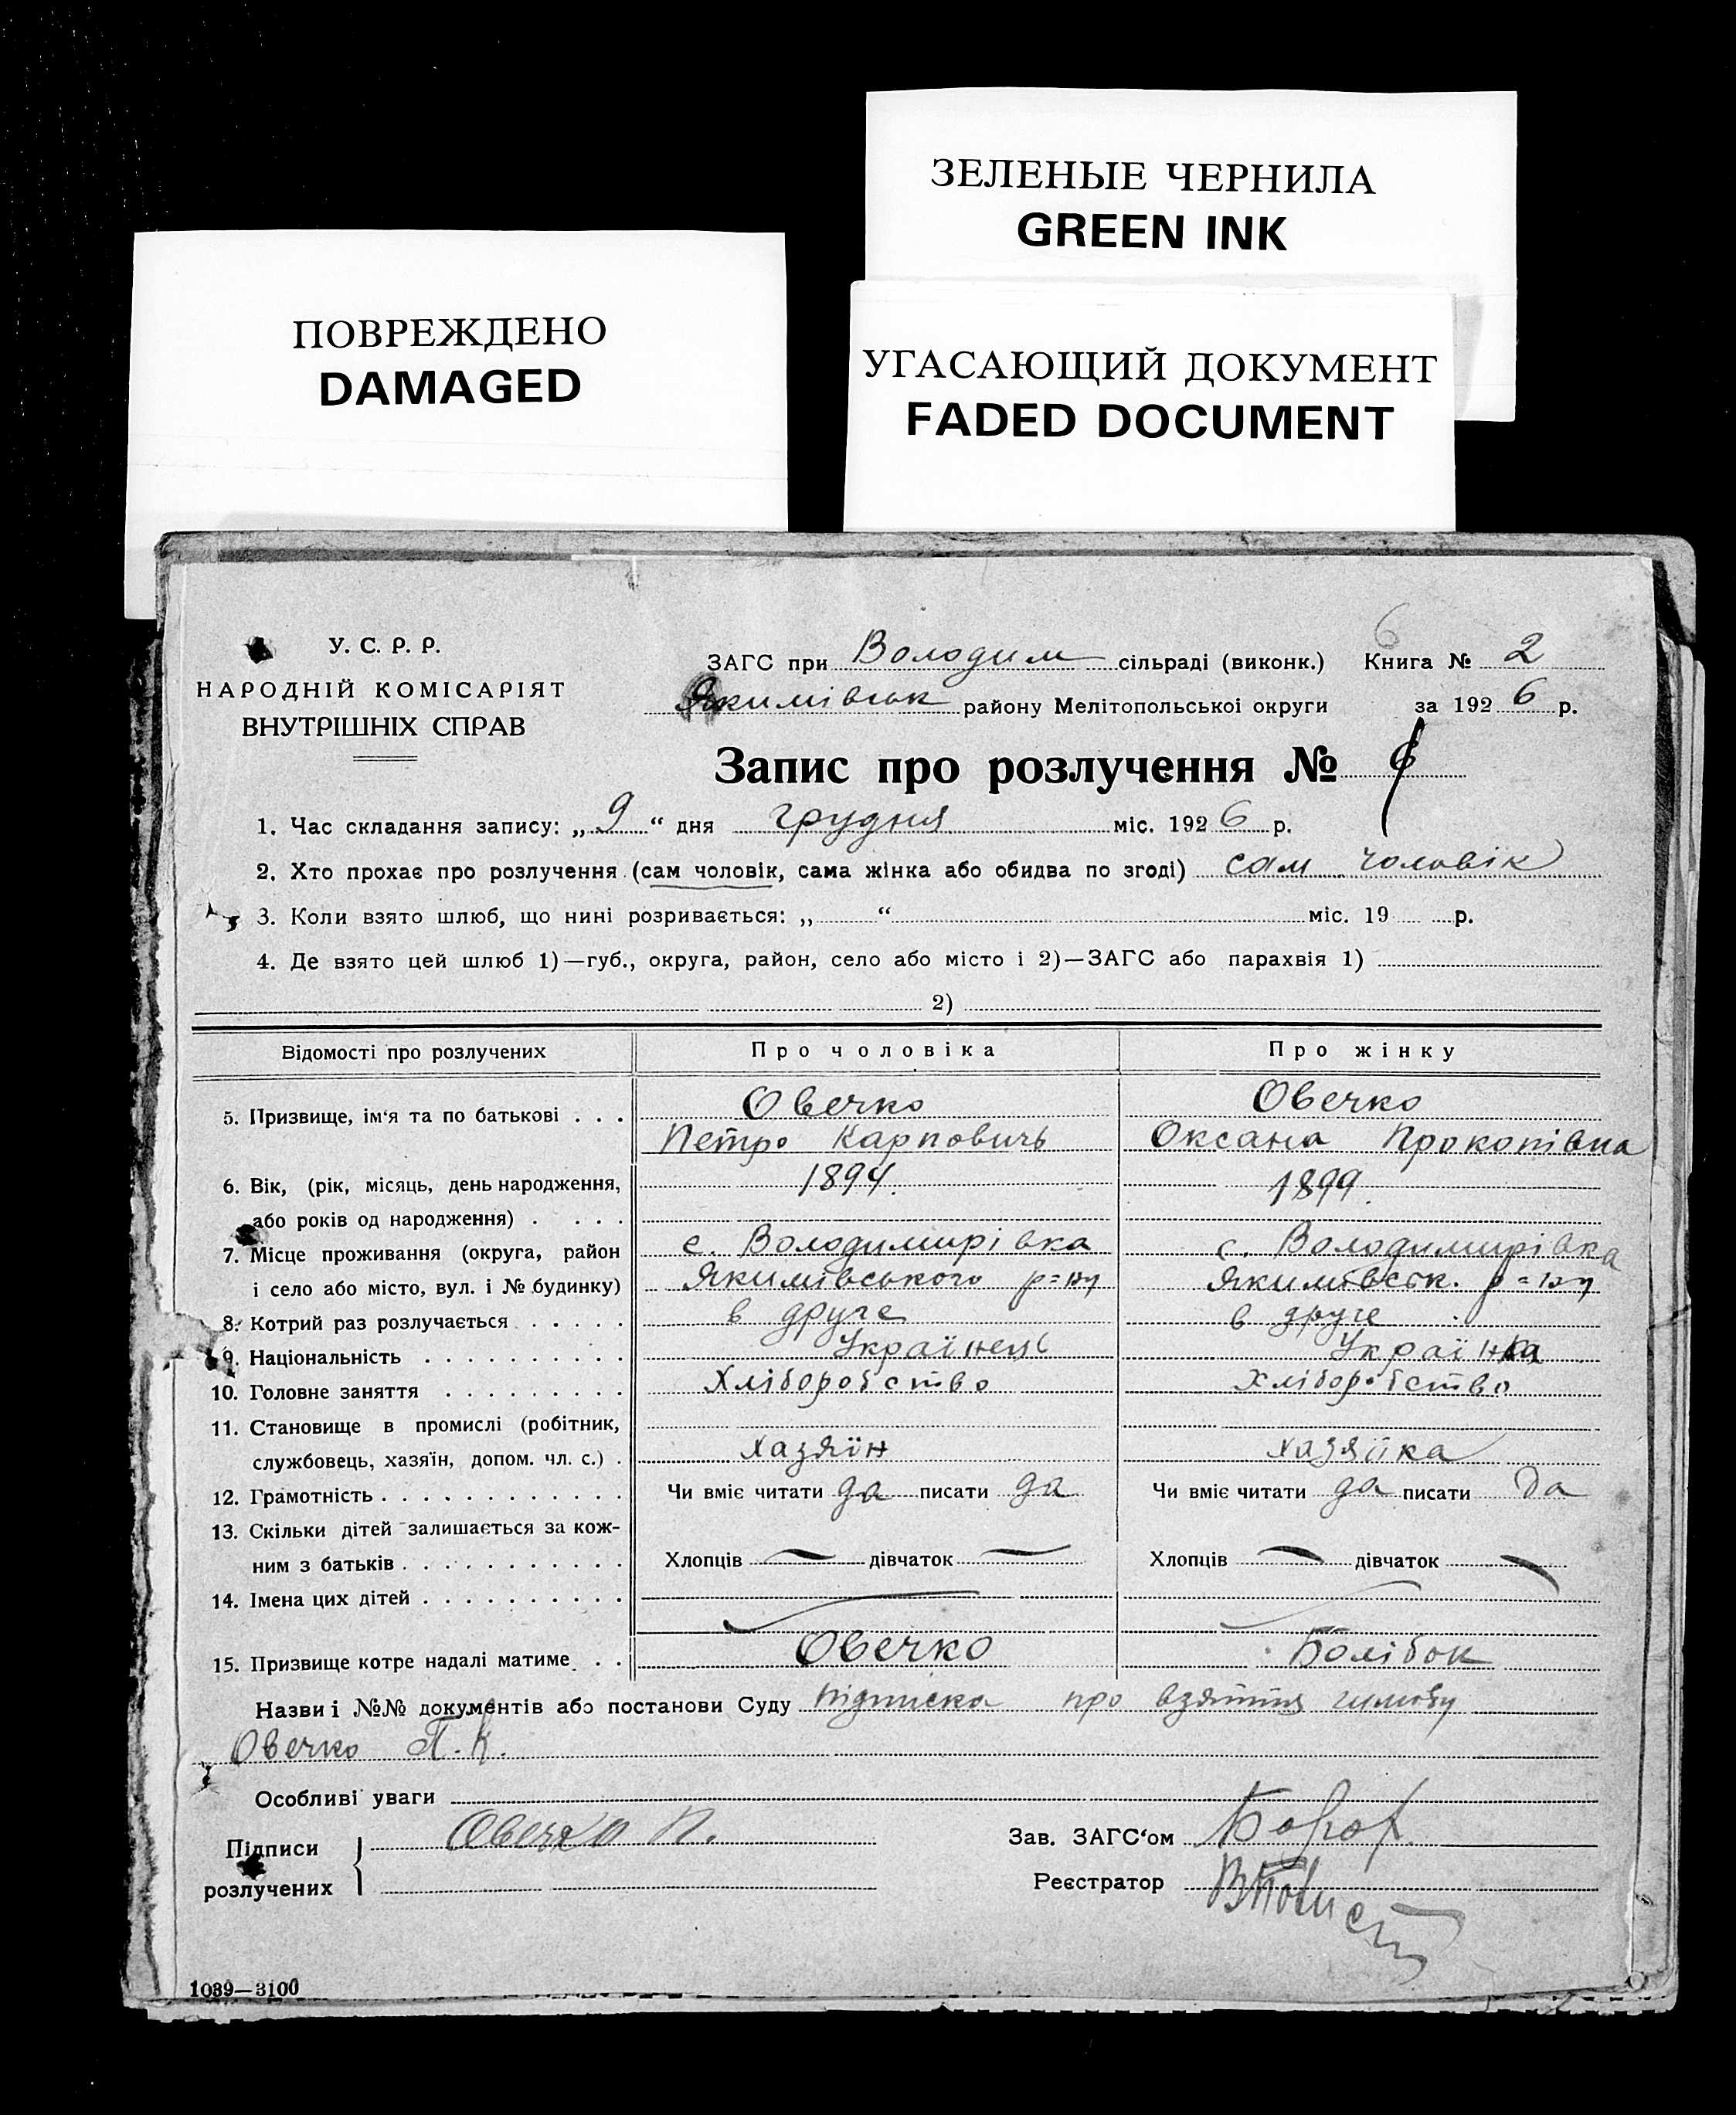 ЗЕЛЕНЫЕ ЧЕРНИЛА
GREEN INK
ПОВРЕЖДЕНО
DAMAGED
УГАСАЮЩИЙ ДОКУМЕНТ
FADED DOCUMENT
У. С. Р. Р.
НАРОДНІЙ КОМІСАРІЯТ
ВНУТРІШНІХ СПРАВ
6
ЗАГС при Володим сільраді (виконк.) Книга № 2
Якимівськ району Мелітопольської округи за 1926 р.
Запис про розлучення № 6
1. Час складання запису: „9“ дня грудня міс. 1926 р.
2. Хто прохає про розлучення (сам чоловік, сама жінка або обидва по згоді) сам чоловік
3. Коли взято шлюб, що нині розривається: „ “ міс. 19 р.
4. Де взято цей шлюб 1)—губ., округа, район, село або місто і 2)—ЗАГС або парахвія 1)
2)
Відомості про розлучених Про чоловіка Про жінку
5. Призвище, ім‘я та по батькові . . . Овечко Овечко
Петро Карповичь Оксана Прокопівна
6. Вік, (рік, місяць, день народження, 1894. 1899.
або років од народження) . . . .
7. Місце проживання (округа, район с. Володимирівка с. Володимирівка
і село або місто, вул. і № будинку) Якимівського р=ну Якимівськ. р=ну
8. Котрий раз розлучається . . . . . в друге в друге
9. Національність . . . . . . . . . . Українець Українка
10. Головне заняття . . . . . . . . . Хліборобство Хліборобство
11. Становище в промислі (робітник,
службовець, хазяїн, допом. чл. с.) . Хазяїн Хазяйка
12. Грамотність . . . . . . . . . . . . Чи вміє читати да писати да Чи вміє читати да писати да
13. Скільки дітей залишається за кож-
ним з батьків . . . . . . . . . . . Хлопців — дівчаток — Хлопців — дівчаток —
14. Імена цих дітей . . . . . . . . . .
15. Призвище котре надалі матиме . . Овечко Болібок
Назви і №№ документів або постанови Суду підписка про взяття шлюбу
Овечко П. К.
Особливі уваги
Підписи Овечко П. Зав. ЗАГС‘ом
розлучених Реєстратор
1039—3100